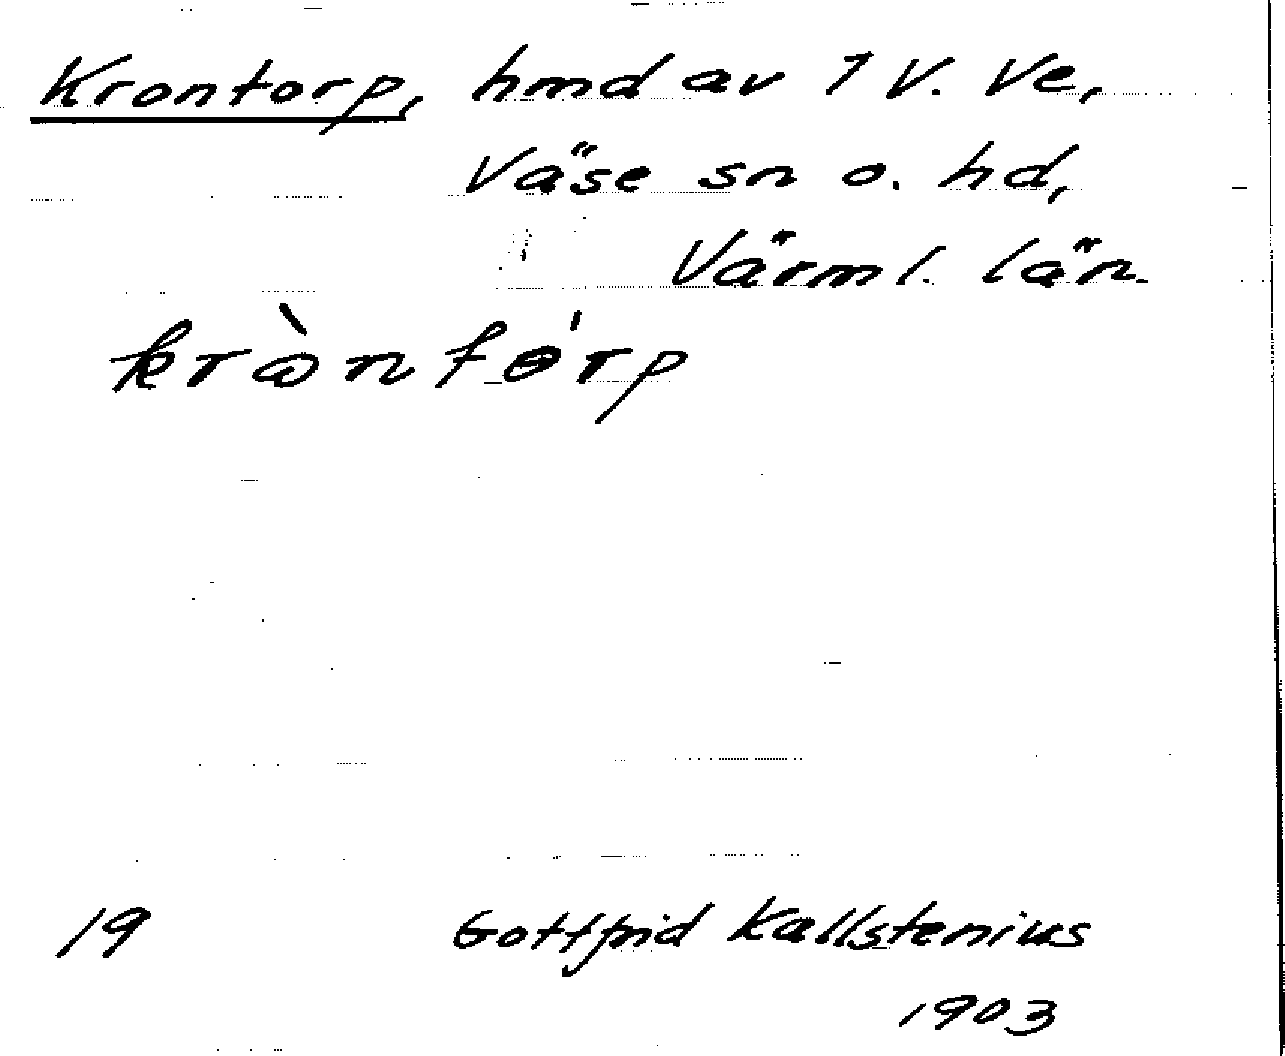 Krontorp, hmd av 1 V. Ve,
Väse sn o. hd,
Värml. län
kròntɵ́rp
19 Gottfrid Kallstenius
1903